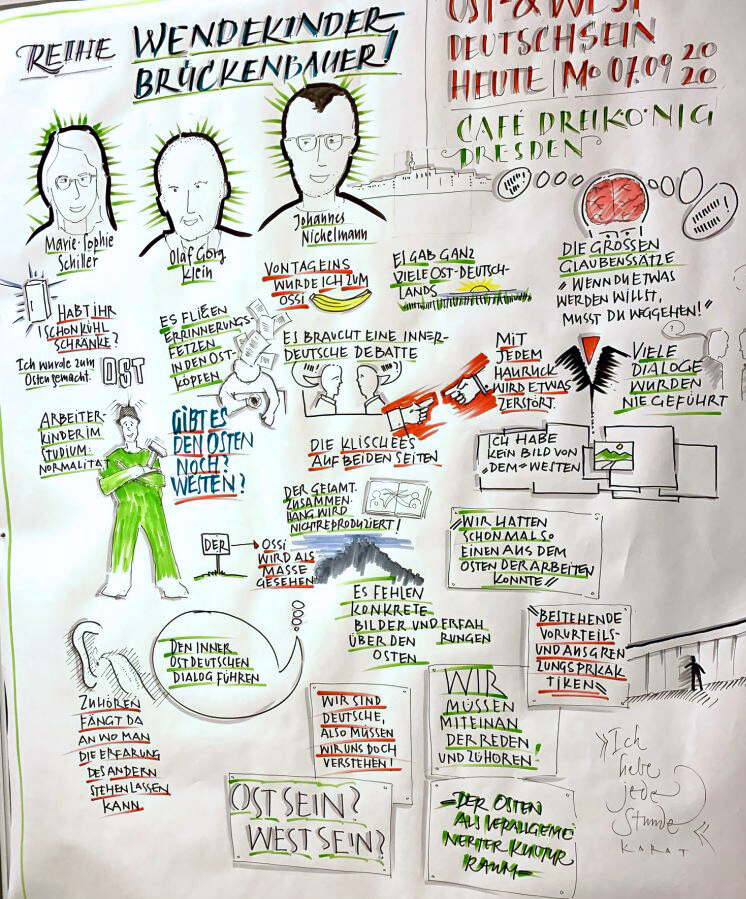 REIHE
WENDEKINDER-
BRÜCKENBAUER!
OST- & WEST
DEUTSCHSEIN
HEUTE | MO 07.09 20
20
CAFÉ DREIKÖNIG
DRESDEN
Marie-Sophie
Schiller
Olaf Georg
Klein
Johannes
Nichelmann
VON TAG EINS
WURDE ICH ZUM
OSSI
ES GAB GANZ
VIELE OST-DEUTSCH-
LANDS
DIE GROSSEN
GLAUBENSSÄTZE
"WENN DU ETWAS
WERDEN WILLST,
MUSST DU WGGEHEN!"
HABT IHR
SCHON KÜHL
SCHRÄNKE?
Ich wurde zum
Osten gemacht.
OST
ES FLIEßEN
ERRINNERUNGS-
FETZEN
IN DEN OST-
KÖPFEN
ES BRAUCHT EINE INNER-
DEUTSCHE DEBATTE
MIT
JEDEM
HAURUCK
WIRD ETWAS
ZERSTÖRT.
VIELE
DIALOGE
WURDEN
NIE GEFÜHRT
ARBEITER-
KINDER IM
STUDIUM:
NORMALITÄT
GIBT ES
DEN OSTEN
NOCH?
WESTEN?
DIE KLISCHEES
AUF BEIDEN SEITEN
ICH HABE
KEIN BILD VON
"DEM" WESTEN
DER GESAMT-
ZUSAMMEN-
HANG WIRD
NICHT REPRODUZIERT!
DER
OSSI
WIRD ALS
MASSE
GESEHEN
"WIR HATTEN
SCHON MAL SO
EINEN AUS DEM
OSTEN DER ARBEITEN
KONNTE"
ES FEHLEN
KONKRETE
BILDER UND ERFAH
RUNGEN
ÜBER DEN
OSTEN
"BESTEHENDE
VORURTEILS-
UND AUSGREN
ZUNGSPRKAK
TIKEN"
DEN INNER
OSTDEUTSCHEN
DIALOG FÜHREN
ZUHÖREN
FÄNGT DA
AN WO MAN
DIE ERFARUNG
DES ANDERN
STEHEN LASSEN
KANN
WIR SIND
DEUTSCHE,
ALSO MÜSSEN
WIR UNS DOCH
VERSTEHEN!
WIR
MÜSSEN
MITEINAN
DER REDEN
UND ZUHÖREN!
OST SEIN?
WEST SEIN?
-DER OSTEN
ALS VERALLGEMEI
NERTER KULTUR
RAUM-
"Ich
liebe
jede
Stunde"
KARAT